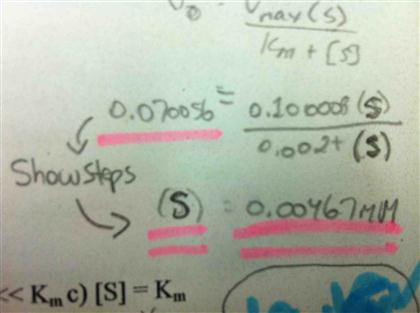 V₀ = Vmax(S)
Km + [S]
0.070056 = 0.100008 (S)
0.002+ (S)
Show steps
(S) = 0.00467mM
<< Km c) [S] = Km